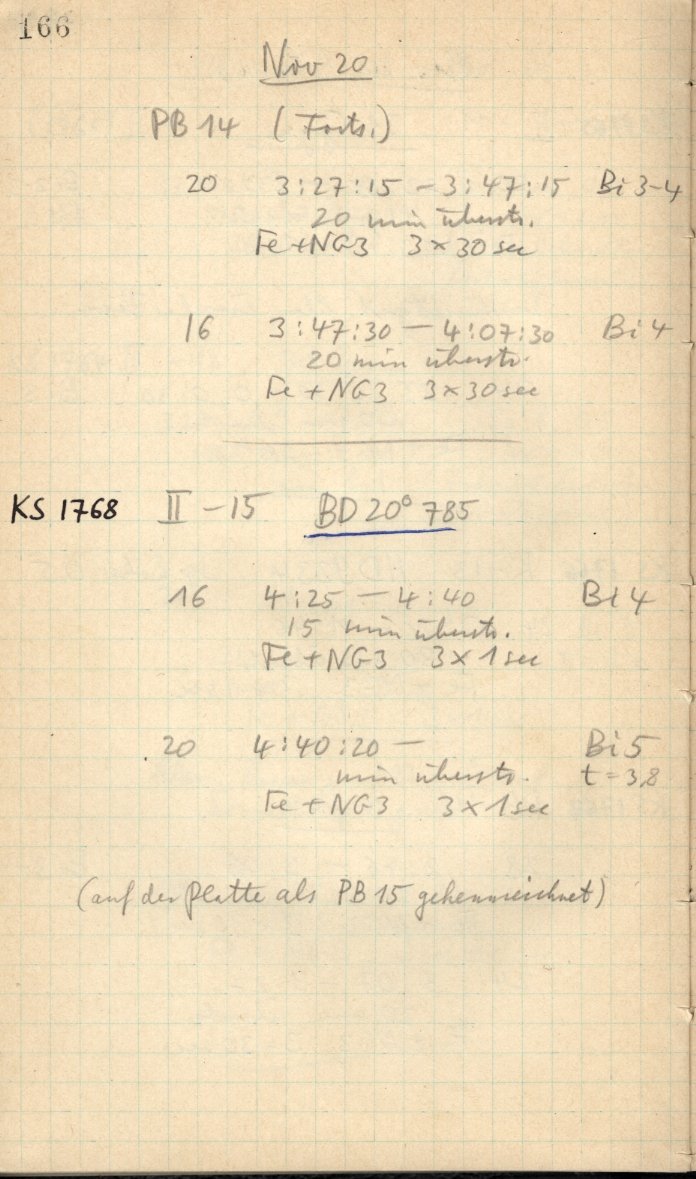 166
Nov 20
PB 14 (Forts.)
20 3:27:15 – 3:47:15 Bi 3-4
20 min überstr.
Fe+NG3 3×30 sec
16 3:47:30 – 4:07:30 Bi 4
20 min überstr.
Fe+NG3 3×30 sec
KS 1768 II – 15 BD 20° 785
16 4:25 – 4:40 Bi 4
15 min überstr.
Fe+NG3 3×1 sec
20 4:40:20 – Bi 5
min überstr. t = 3,8
Fe+NG3 3×1 sec
(auf der Platte als PB 15 gekennzeichnet)